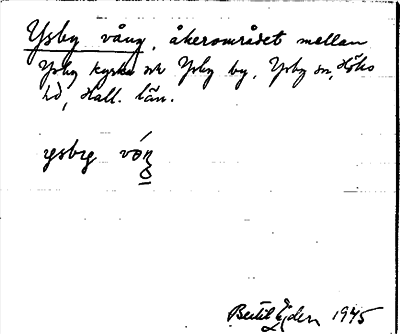 Ysby vång, åkerområdet mellan
Ysby kyrka och Ysby by, Ysby sn, Höks
hd, Hall. län.
ysby vóŋ
Bertil Ejder 1945